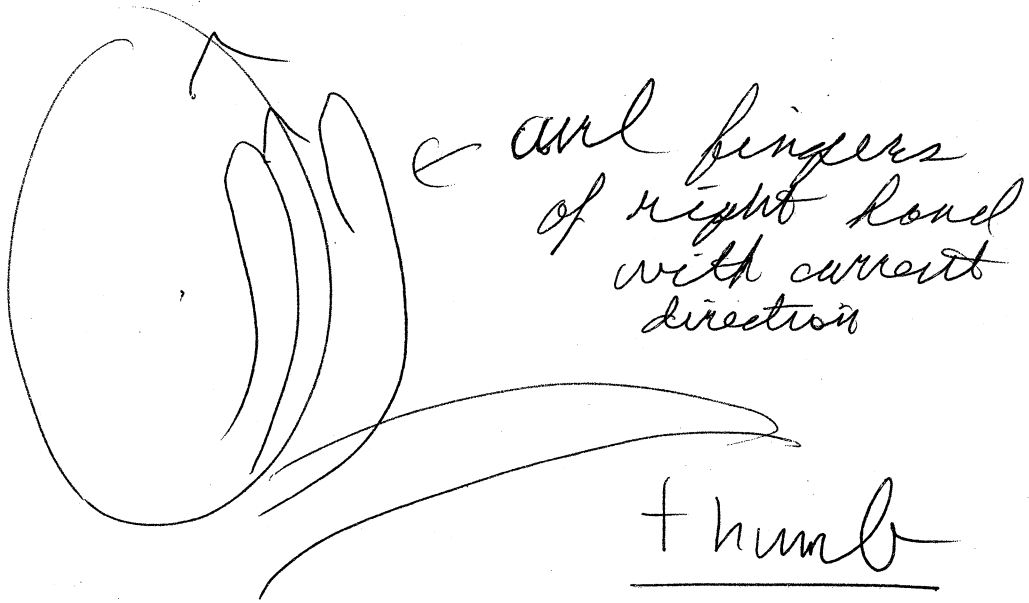 curl fingers
of right hand
with current
direction
thumb